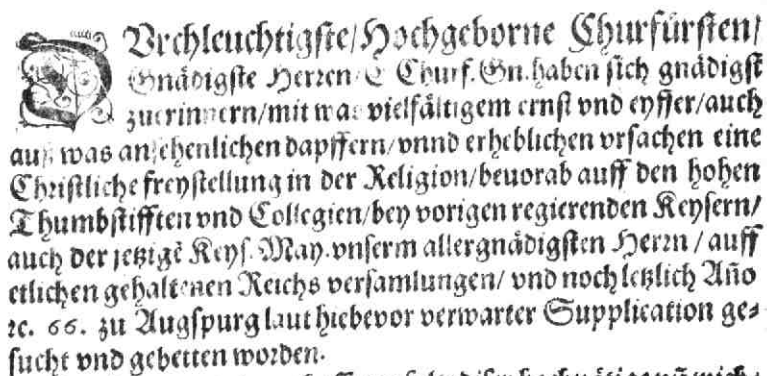 DVrchleuchtigste/Hochgeborne Churfürsten/
Gnädigste Herren E Churf. Gn. haben sich gnädigst
zuerinnern/mit was vielfältigem ernst vnd eyffer/auch
auß was ansehenlichen dapffern/vnnd erheblichen vrsachen eine
Christliche freystellung in der Religion/beuorab auff den hohen
Thumbstifften vnd Collegien/bey vorigen regierenden Keysern/
auch der jetzigē Keys. May. vnserm allergnädigsten Herrn / auff
etlichen gehaltenen Reichs versamlungen/ vnd noch letzlich Año
ꝛc. 66. zu Augspurg laut hiebevor verwarter Supplication ge⸗
sucht vnd gebetten worden.